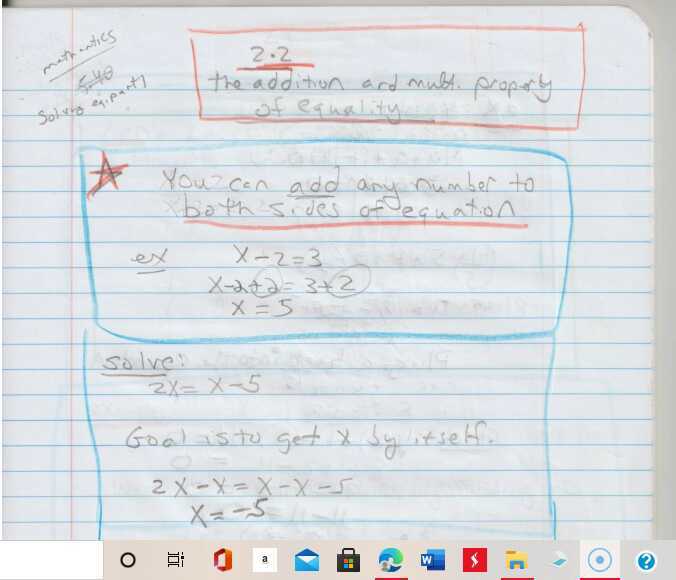 mathmatics
5.40
Solving eq. part 1
2.2
the addition and mult. property
of equality
You can add any number to
both sides of equation
ex
x-2=3
x-2+2=3+2
x=5
solve:
2x=x-5
Goal is to get x by itself.
2x-x=x-x-5
x=-5
a
W
?